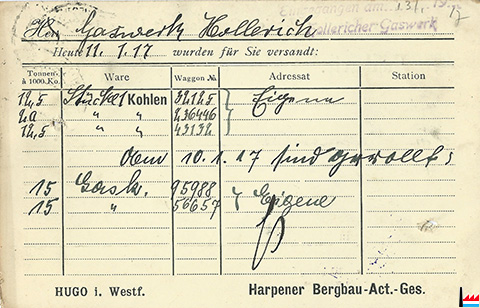 Eingegangen am: 13/1. 1917
Hollericher Gaswerk
Herr Gaswerk Hollerich
Heute 11. 1. 17 wurden für Sie versandt:
Tonnen à 1000 Ko. Ware Waggon № Adressat Station
12,5 Stücke/Kohlen 32125 } Eigene
20 " " 236446
12,5 " " 43132
10. 1. 17 sind gerollt:
15 Gask. 95988 } Eigene
15 " 56657
HUGO i. Westf. Harpener Bergbau-Act.-Ges.